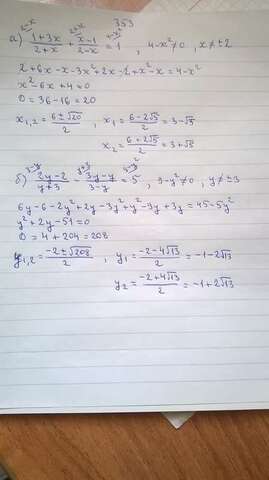 353
а) \frac{1+3x}{2+x} + \frac{x-1}{2-x} = 1 , 4-x² ≠ 0 , x ≠ ±2
2+6x-x-3x²+2x-2+x²-x=4-x²
x²-6x+4=0
D=36-16=20
x₁,₂ = \frac{6±√20}{2} , x₁ = \frac{6-2√5}{2} = 3-√5
x₂ = \frac{6+2√5}{2} = 3+√5
б) \frac{2y-2}{y+3} - \frac{3y-y}{3-y} = 5 , 9-y² ≠ 0 , y ≠ ±3
6y-6-2y²+2y-3y²+y²-9y+3y=45-5y²
y²+2y-51=0
D=4+204=208
y₁,₂ = \frac{-2±√208}{2} , y₁ = \frac{-2-4√13}{2} = -1-2√13
y₂ = \frac{-2+4√13}{2} = -1+2√13